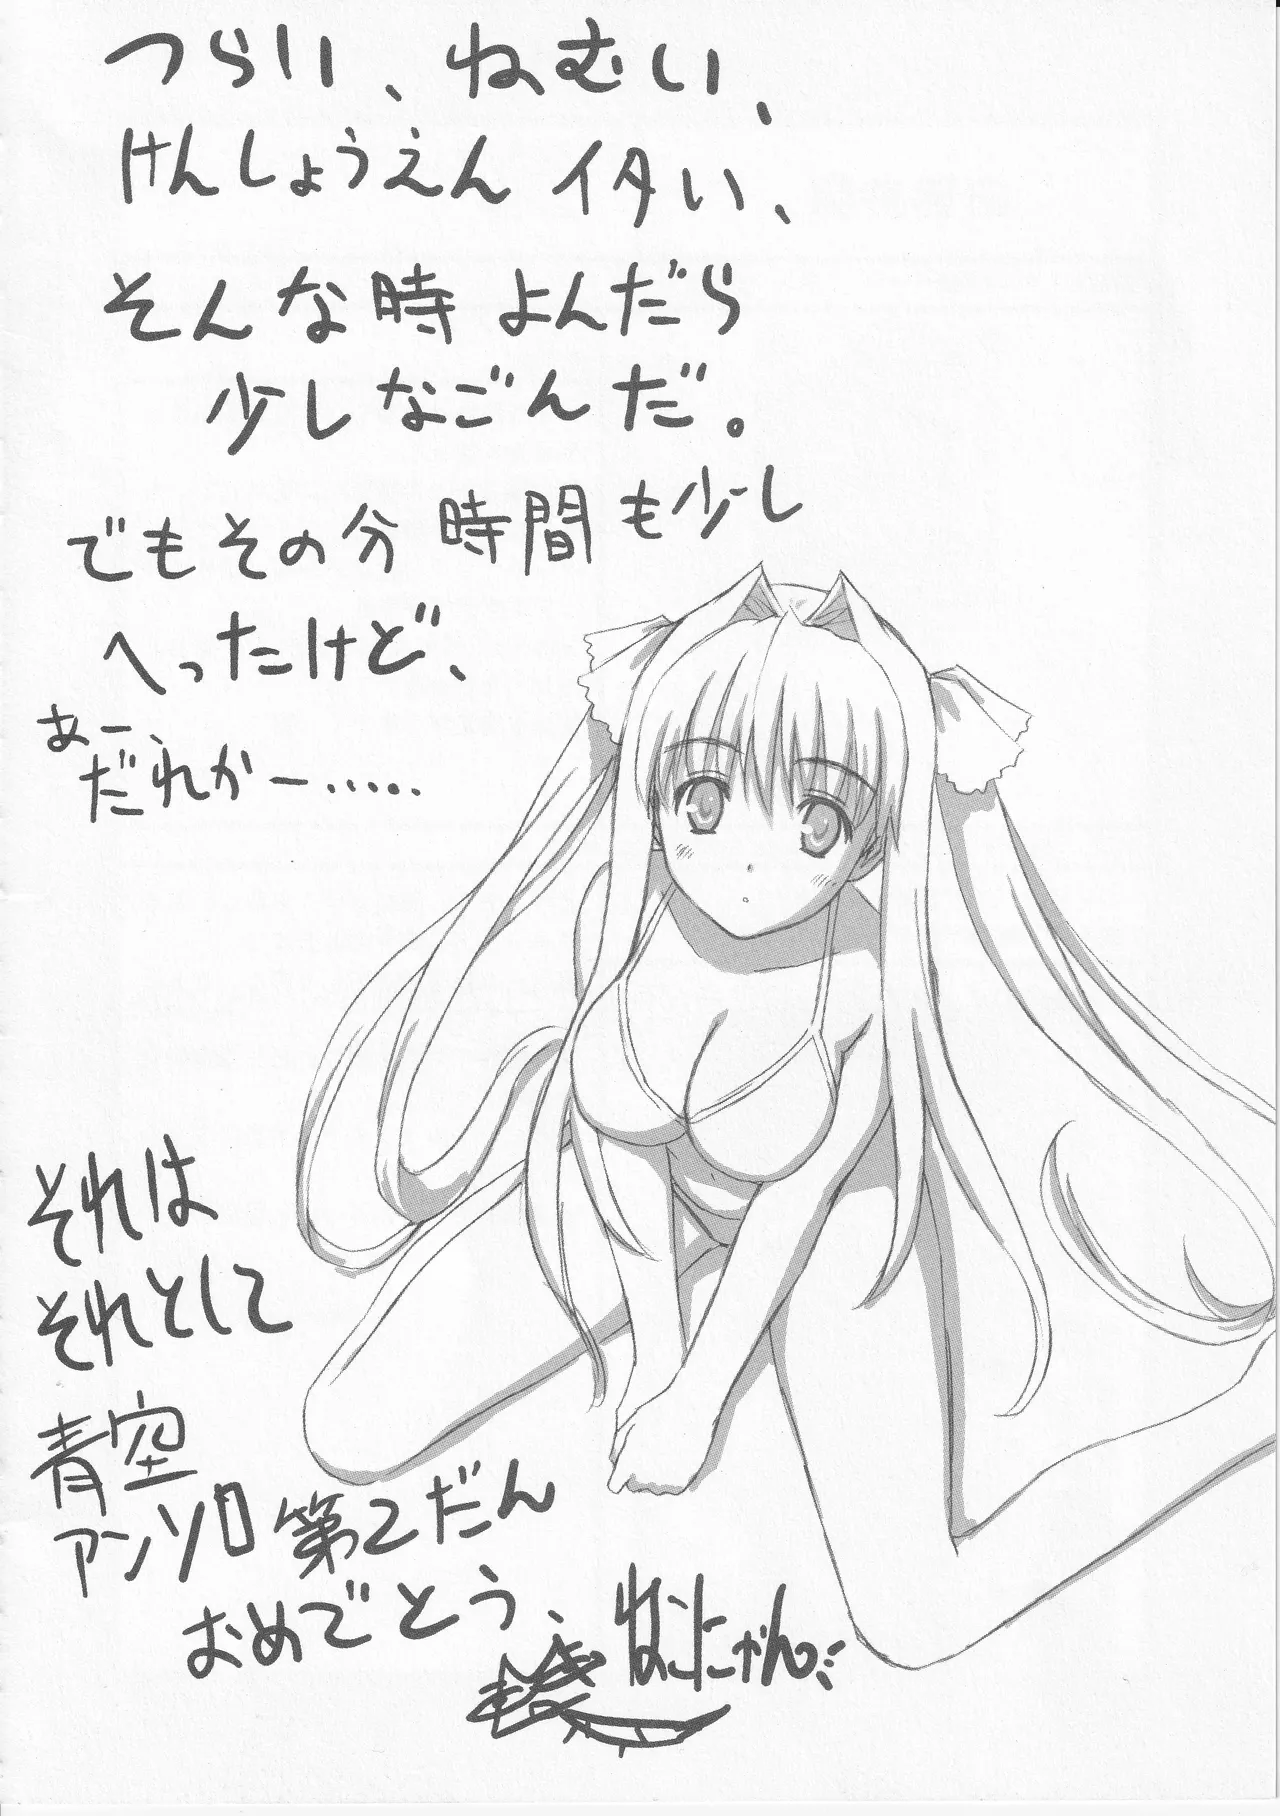 つらい、ねむい、
けんしょうえん イタい、
そんな時 よんだら
少しなごんだ。
でもその分 時間も少し
へったけど、
あー、
だれかー.....
それは
それとして
青空
アンソロ 第2だん
おめでとう、
ねこにゃん